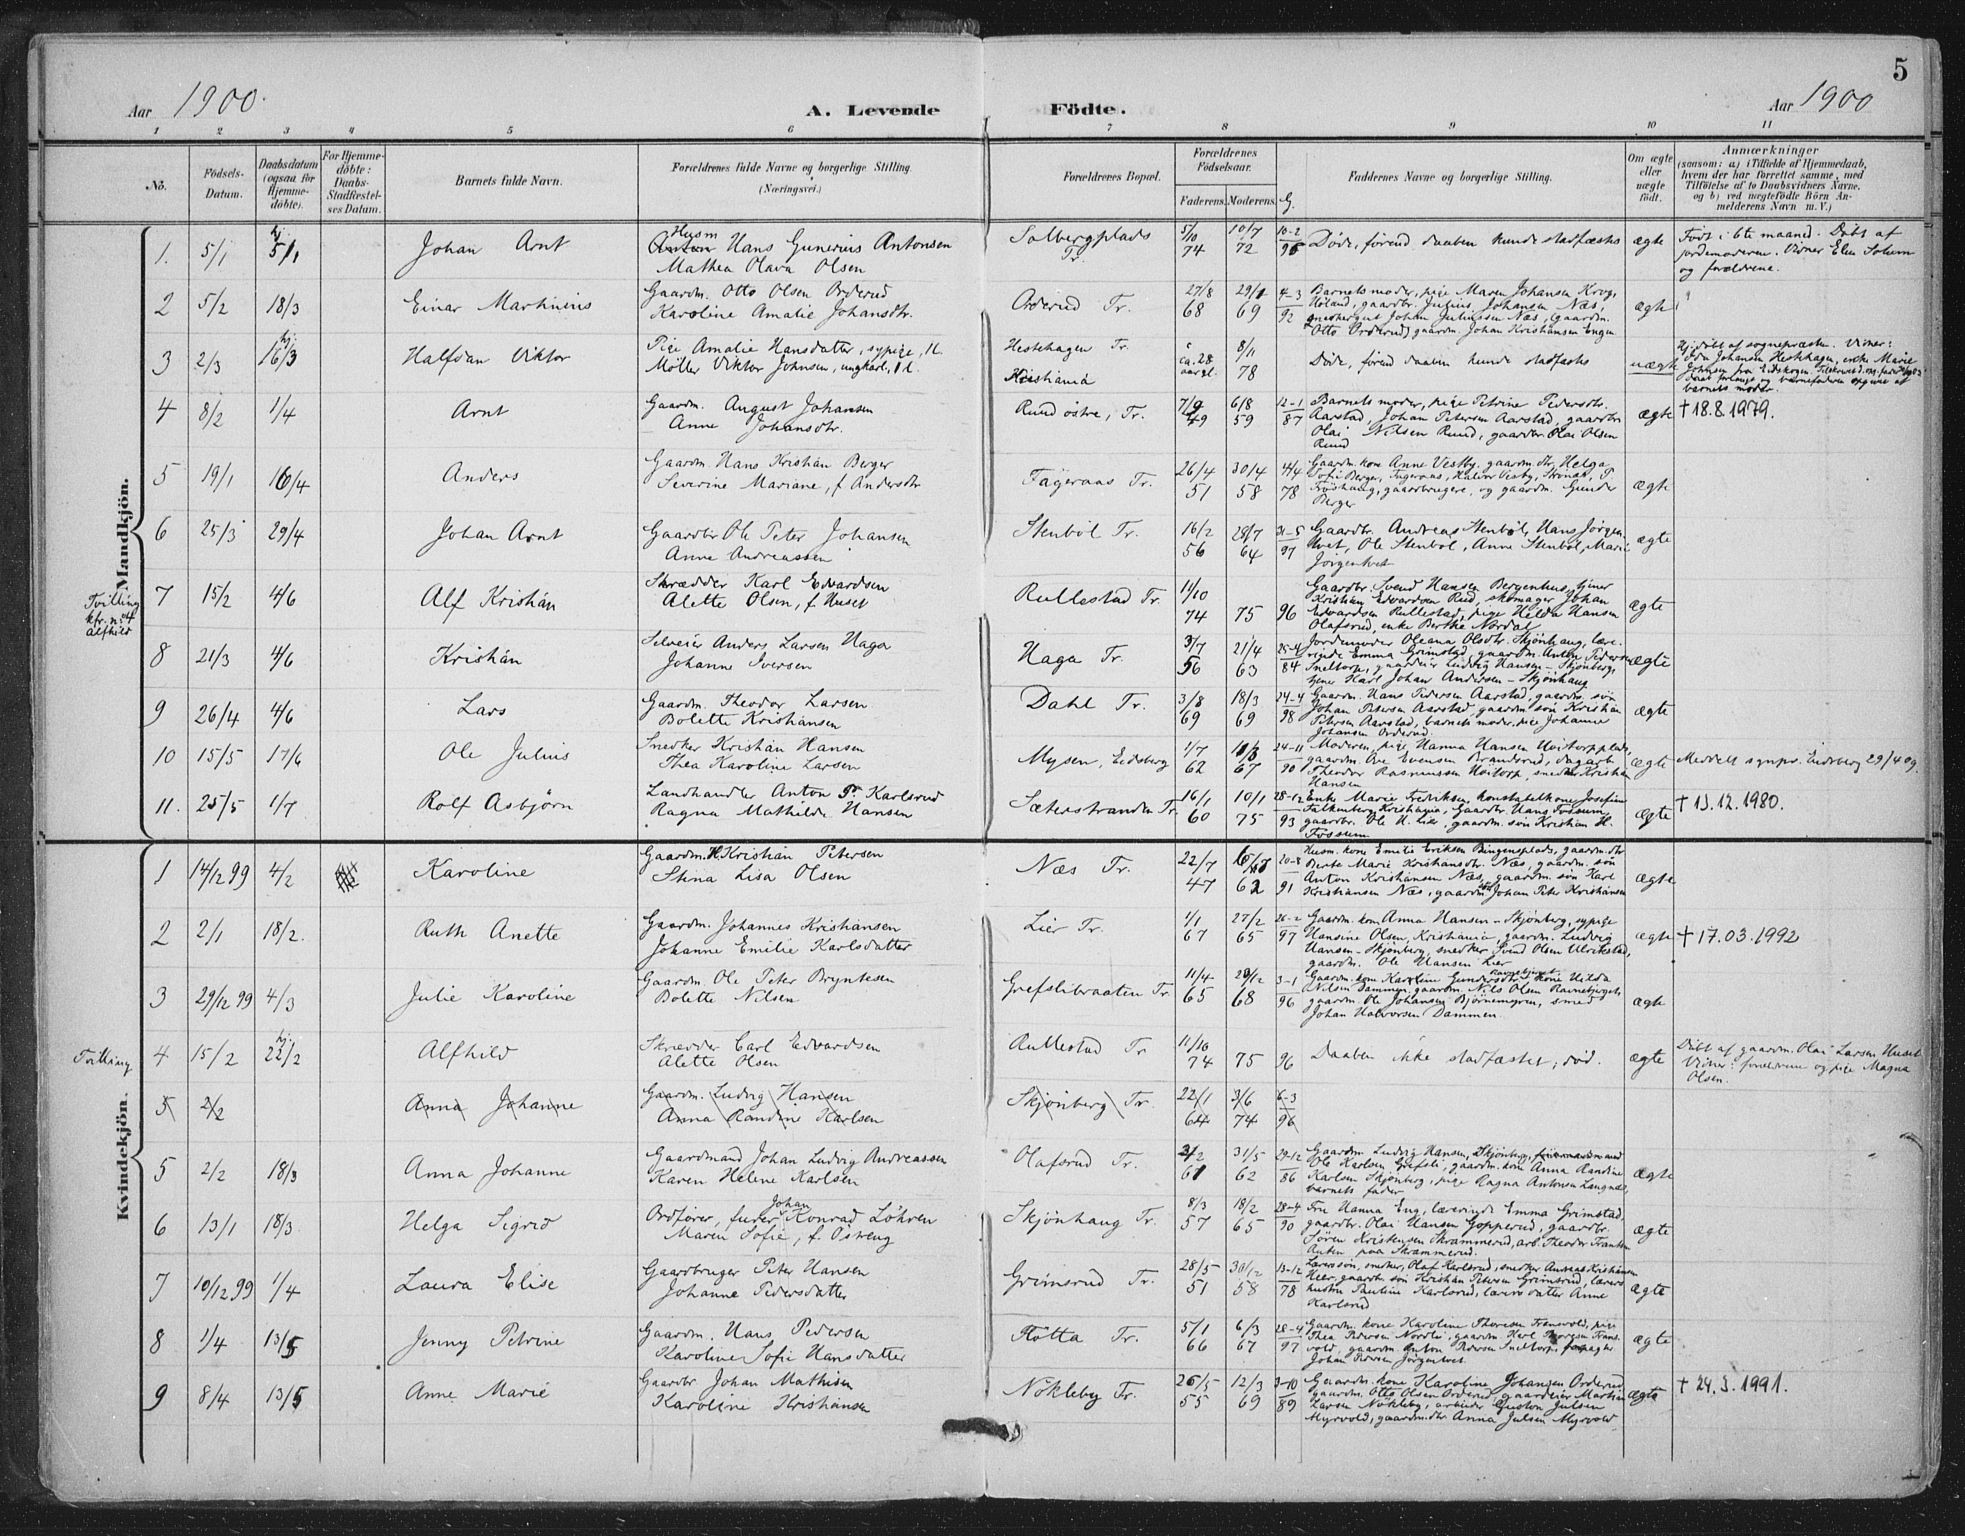 5
Aar 1900. A. Levende Födte. Aar 1900
1 2 3 4 5 6 7 8 9 10 11
No. Födsels-Datum. Daabsdatum (ogsaa for Hjemme-döbte). For Hjemme-döbte: Daabs-Stadfæstel-ses Datum. Barnets fulde Navn. Forældrenes fulde Navne og borgerlige Stilling. (Næringsvei.) Forældrenes Bopæl. Forældrenes Födselsaar. Faderens. Moderens. G. Faddernes Navne og borgerlige Stilling. Om ægte eller uægte födt. Anmærkninger (saasom: a) i Tilfælde af Hjemmedaab, hvem der har forrettet samme, med Tilföielse af to Daabsvidners Navne, og b) ved uægtefödte Börn An-melderens Navn m. V.)
Mandkjön.
1. 5/1 hj. 5/1 Johan Arnt Husm Hans Gunerius Antonsen
Mathea Olava Olsen Solbergplads Tr. 5/10 74 10/7 72 10-2 Døde, førend daaben kunde stadfæstes ægte Født i 6te maaned. Døbt af
jordemoderen. Vidner Elen Solum
og forældrene.
2 5/2 18/3 Einar Martinius Gaardm. Otto Olsen Orderud
Karoline Amalie Johansdtr. Orderud Tr. 27/8 68 69 4-3 92 Barnets moder, pige Maren Johansen Krog,
Høland, gaardbr. Julius Johansen Næs,
Johan Juliussen Næs, (gaardm.
Otto Orderud) gaardm. Johan Kristiansen Engen ægte
3 2/3 hj. 16/3 Halfdan Viktor Pige Amalie Hansdatter, sypige, 1l.
Möller Viktor Johnsen, ungkarl, 1l. Hestehagen Tr.
Kristiania ca. 28 aar gl. 8/1 78 Døde, førend daaben kunde stadfæstes uægte Hj. döbt af sognepræsten. Vidner:
Johansen Hestehagen, enke Marie
Johnsen fra Eidskogen.
barnets moder.
4 8/2 1/4 Arnt Gaardm. August Johansen
Anne Johansdtr. Ruud östre, Tr. 7/9 49 6/8 59 12-1 87 Barnets moder, pige Petrine Pedersdtr.
Aarstad, Johan Petersen Aarstad, gaardbr.
Olai Nilsen Ruud, gaardbr. Olai Olsen
Ruud ægte † 18.8.1979.
5 19/1 16/4 Anders Gaardm. Hans Kristian Berger
Severine Mariane, f. Andersdtr Fägeraas Tr. 26/4 51 30/4 58 4/4 78 Gaardm. kone Anne Vestby, gaardm. dtr, Helga
Sofie Berger, Fageraas, Halvor Vestby,
gaardbrugere, og gaardm. Gunder
Berger ægte
6 25/3 29/4 Johan Arnt Gaardbr. Ole Peter Johansen
Anne Andreassen Stenböl Tr. 16/2 56 28/7 64 31-5 97 Gaardbr. Andreas Stenböl, Hans Jörgen
tvet, Ole Stenböl, Anne Stenböl, Marie
Jörgentvet ægte
Tvilling
kfr. no 4
Alfhild
7 15/2 4/6 Alf Kristian Skrædder Karl Edvardsen
Alette Olsen, f. Huset Rullestad Tr. 11/10 74 75 96 Gaardbr. Svend Hansen Bergenhus, tjener
Kristian Edvardsen Rud, skomager Johan
Edvardsen Rullestad, pige Hilda Hansen
Olafsrud, enke Berthe Nordal ægte
8 21/3 4/6 Kristian Selveier Anders Larsen Haga
Johanne Iversen Haga Tr. 3/7 56 21/4 63 25-4 84 Jordemoder Oleana Olsdtr. Skjönhaug, lære-
rinde Emma Grimstad, gaardm. Anton Pedersen
Sneltorp, gaardeier Ludvig Hansen - Skjönberg,
tjener Karl Johan Andersen - Skjönhaug ægte
9 26/4 4/6 Lars Gaardm. Theodor Larsen
Bolette Kristiansen Dahl Tr. 3/8 69 18/3 69 24-4 98 Gaardm. Hans Pedersen Aarstad, gaardm. søn
Johan Petersen Aarstad, gaardm. søn Kristian
Petersen Aarstad, barnets moder, pige Johanne
Johansen Orderud. ægte
10 15/5 17/6 Ole Julius Snedker Kristian Hansen
Thea Karoline Larsen Mysen, Eidsberg 1/7 62 67 24-11 90 Moderen, pige Hanna Hansen Hoitorpplads,
gaardm. Ole Evensen Branderud, dagarb.
Theodor Rasmussen Hoitorp, snedker Kristian
Hansen ægte Meddelt sognpr. Eidsberg 29/4 09.
11. 25/5 1/7 Rolf Asbjörn Landhandler Anton Fr. Karlsrud
Ragna Mathilde Hansen Sæterstranden Tr. 16/1 60 10/1 75 28-12 93 Enke Marie Fredriksen, konstabelkone Josefine
Falkenberg Kristiania, Gaardbr. Hans Fossum,
gaardbr. Ole H. Lier, gaardm. søn Kristian H.
Fossum ægte † 13.12.1980.
Kvindekjön.
1 14/12 99 4/2 Karoline Gaardm. H. Kristian Petersen
Stina Lisa Olsen Næs Tr. 22/7 47 62 20-8 91 Husm. kone Emilie Eriksen Bingensplads, gaardm. dtr
Berte Marie Kristiansdtr. Næs, gaardm. søn
Anton Kristiansen Næs, gaardm. søn Karl
Kristiansen Næs, gaardm. søn Johan Peter Kristiansen ægte
2 2/1 18/2. Ruth Anette Gaardm. Johannes Kristiansen
Johanne Emilie Karlsdatter Lier Tr. 1/1 67 27/2 65 26-2 97 Gaardm. kone Anna Hansen - Skjönberg, sypige
Hansine Olsen, Kristiania, gaardm. Ludvig
Hansen - Skjönberg, snedker Svend Olsen Ulrikstad,
gaardm. Ole Hansen Lier ægte † 17.03.1992
3 29/12 99 4/3 Julie Karoline Gaardm Ole Peter Bryntesen
Bolette Nilsen Grefslibraaten Tr. 11/4 65 68 3-1 96 Gaardm. kone Karoline Gundersdtr. kone Hilda
Nilsen Dammen, gaardm. Nils Olsen Ravnebjerget,
gaardm. Ole Johansen Bjørnemyren, smed
Johan Halvorsen Dammen. ægte
Tvilling 4 15/2 hj. 22/2 Alfhild Skrædder Carl Edvardsen
Alette Olsen Rullestad Tr 11/10 74 75 96 Daaben ikke stadfæstet, död. ægte Döbt af gaardm. Olai Larsen Huset
Vidner: forældrene og pige Magna
Olsen.
5 2/2 Anna Johanne Gaardm. Ludvig Hansen
Anna Randine Karlsen Skjönberg Tr. 22/1 64 3/6 74 6-3 96
5 2/2 18/3 Anna Johanne Gaardmand Johan Ludvig Andreassen
Karen Helene Karlsen Olafsrud Tr. 2/2 61 31/5 62 29-12 86 Gaardm. Ludvig Hansen, Skjönberg,
Ole Karlsen Grefsli, gaardm. kone Anna Randine
Karlsen Skjönberg, pige Ragna Antonsen Langnæs,
barnets fader ægte
6 13/1 18/3 Helga Sigrid Ordförer, furer Johan Konrad Löhren
Maren Sofie, f. Östreng Skjönhaug Tr. 8/3 57 18/2 65 28-4 90 Fru Hanna Eng, lærerinde Emma Grimstad,
gaardbr. Olai Hansen Gopperud, gaardbr.
Sören Kristensen Skrammerud, arb. Theodor Frantsen
Anten paa Skrammerud. ægte
7 10/12 99 1/4 Laura Elise Gaardbruger Peter Hansen
Johanne Pedersdatter Grimsrud Tr. 28/5 51 30/12 58 13-12 78 Lærersön, snedker, Olaf Karlsrud, snedker Andreas Kristiansen
Heer, gaardbr. søn Kristian Petersen Grimsrud, lærers
hustru Pauline Karlsrud, lærers datter Anne
Karlsrud ægte
8 1/4 13/5 Jenny Petrine Gaardm. Hans Pedersen
Karoline Sofie Hansdatter Flötta Tr. 5/1 66 6/3 67 28-4 97 Gaardm. kone Karoline Thoresen Transvold, pige
Thea Pedersen Nordli, gaardm. Karl Thoresen Trans-
vold, gaardm. Anton Pedersen Sneltorp, forpagter
Johan Pedersen Jörgentvet. ægte
9 8/4 13/5 Anne Marie Gaardbr. Johan Mathisen
Karoline Kristiansen Nökleby Tr. 26/5 55 12/3 69 3-10 89 Gaardm. kone Karoline Johansen Orderud
gaardm. Otto Olsen Orderud, gaardeier Martin
Larsen Nökleby, arbeider Gustav Julsen
Myrvold, gaardm. dtr. Anna Julsen Myrvold ægte † 24.3.1991.